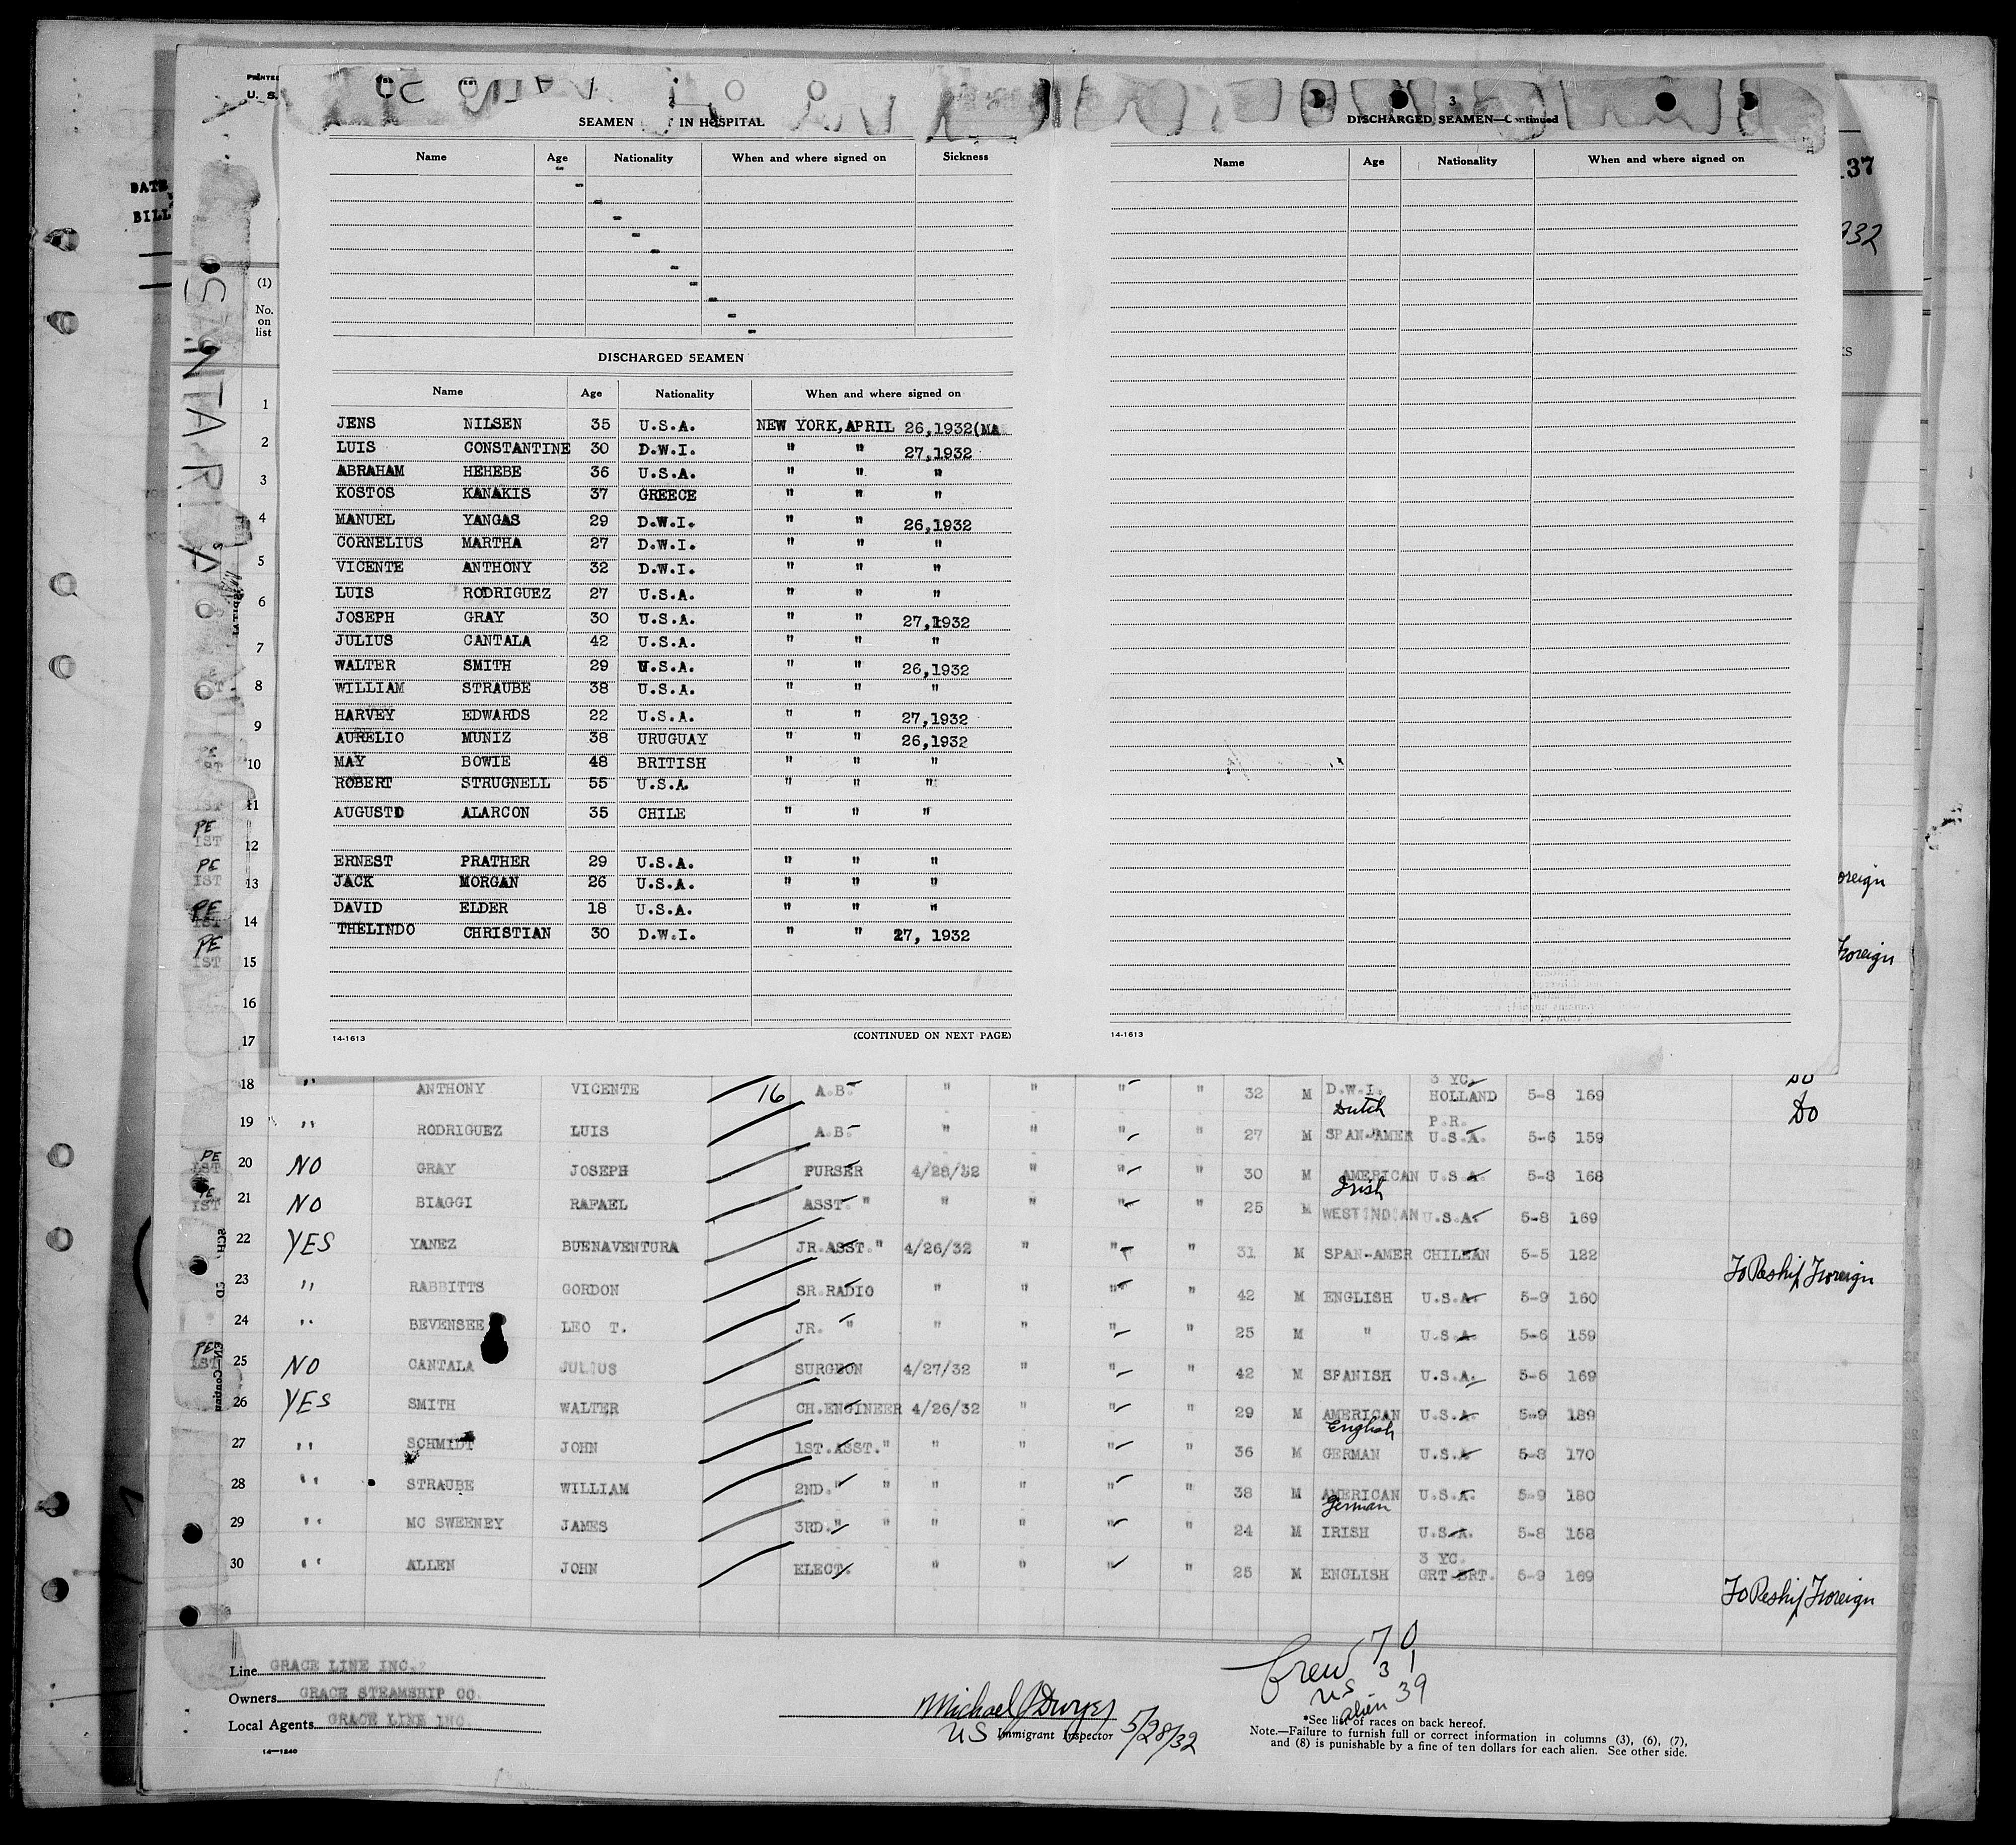 PRINTED
U. S.
2
SEAMEN IN HOSPITAL
Name Age Nationality When and where signed on Sickness
DISCHARGED SEAMEN
Name Age Nationality When and where signed on
JENS NILSEN 35 U.S.A. NEW YORK,APRIL 26,1932(MA
LUIS CONSTANTINE 30 D.W.I. " " 27,1932
ABRAHAM HEHEBE 36 U.S.A. " " "
KOSTOS KANAKIS 37 GREECE " " "
MANUEL YANGAS 29 D.W.I. " " 26,1932
CORNELIUS MARTHA 27 D.W.I. " " "
VICENTE ANTHONY 32 D.W.I. " " "
LUIS RODRIGUEZ 27 U.S.A. " " "
JOSEPH GRAY 30 U.S.A. " " 27,1932
JULIUS CANTALA 42 U.S.A. " " "
WALTER SMITH 29 U.S.A. " " 26,1932
WILLIAM STRAUBE 38 U.S.A. " " "
HARVEY EDWARDS 22 U.S.A. " " 27,1932
AURELIO MUNIZ 38 URUGUAY " " 26,1932
MAY BOWIE 48 BRITISH " " "
ROBERT STRUGNELL 55 U.S.A. " " "
AUGUSTO ALARCON 35 CHILE " " "
ERNEST PRATHER 29 U.S.A. " " "
JACK MORGAN 26 U.S.A. " " "
DAVID ELDER 18 U.S.A. " " "
THELINDO CHRISTIAN 30 D.W.I. " " 27, 1932
14-1613 (CONTINUED ON NEXT PAGE)
3
DISCHARGED SEAMEN—Continued
Name Age Nationality When and where signed on
14-1613
DATE
BILL
SANTA RITA
(1)
No.
on
list
1
2
3
4
5
6
7
8
9
10
11
PE
IST
12
PE
IST
13
PE
IST
14
PE
IST
15
16
17
37
932
KS
oreign
Foreign
18 " ANTHONY VICENTE 16 A.B. " " " " 32 M D.W.I. Dutch 3 YC. HOLLAND 5-8 169 Do
19 " RODRIGUEZ LUIS A.B. " " " " 27 M SPAN-AMER P.R. U.S.A. 5-6 159 Do
PE IST 20 NO GRAY JOSEPH PURSER 4/28/32 " " " 30 M AMERICAN Irish U.S.A. 5-8 168
PE IST 21 NO BIAGGI RAFAEL ASST. " " " " " 25 M WEST INDIAN U.S.A. 5-8 169
22 YES YANEZ BUENAVENTURA JR.ASST." 4/26/32 " " " 31 M SPAN-AMER CHILEAN 5-5 122 To Reship Foreign
23 " RABBITTS GORDON SR.RADIO " " " " 42 M ENGLISH U.S.A. 5-9 160
24 " BEVENSEE LEO T. JR. " " " " " 25 M " U.S.A. 5-6 159
PE IST 25 NO CANTALA JULIUS SURGEON 4/27/32 " " " 42 M SPANISH U.S.A. 5-6 169
26 YES SMITH WALTER CH.ENGINEER 4/26/32 " " " 29 M AMERICAN English U.S.A. 5-9 189
27 " SCHMIDT JOHN 1ST.ASST." " " " " 36 M GERMAN U.S.A 5-8 170
28 " STRAUBE WILLIAM 2ND." " " " " " 38 M AMERICAN German U.S.A. 5-9 180
29 " MC SWEENEY JAMES 3RD." " " " " " 24 M IRISH U.S.A. 5-8 158
30 " ALLEN JOHN ELECT. " " " " 25 M ENGLISH 3 YC. GRT.BRT. 5-9 169 To Reship Foreign
Line GRACE LINE INC.
Owners GRACE STEAMSHIP CO.
Local Agents GRACE LINE INC.
14—1240
Michael J Dwyer
US Immigrant Inspector 5/28/32
Crew 70
US 31
alien 39
*See list of races on back hereof.
Note.—Failure to furnish full or correct information in columns (3), (6), (7),
and (8) is punishable by a fine of ten dollars for each alien. See other side.